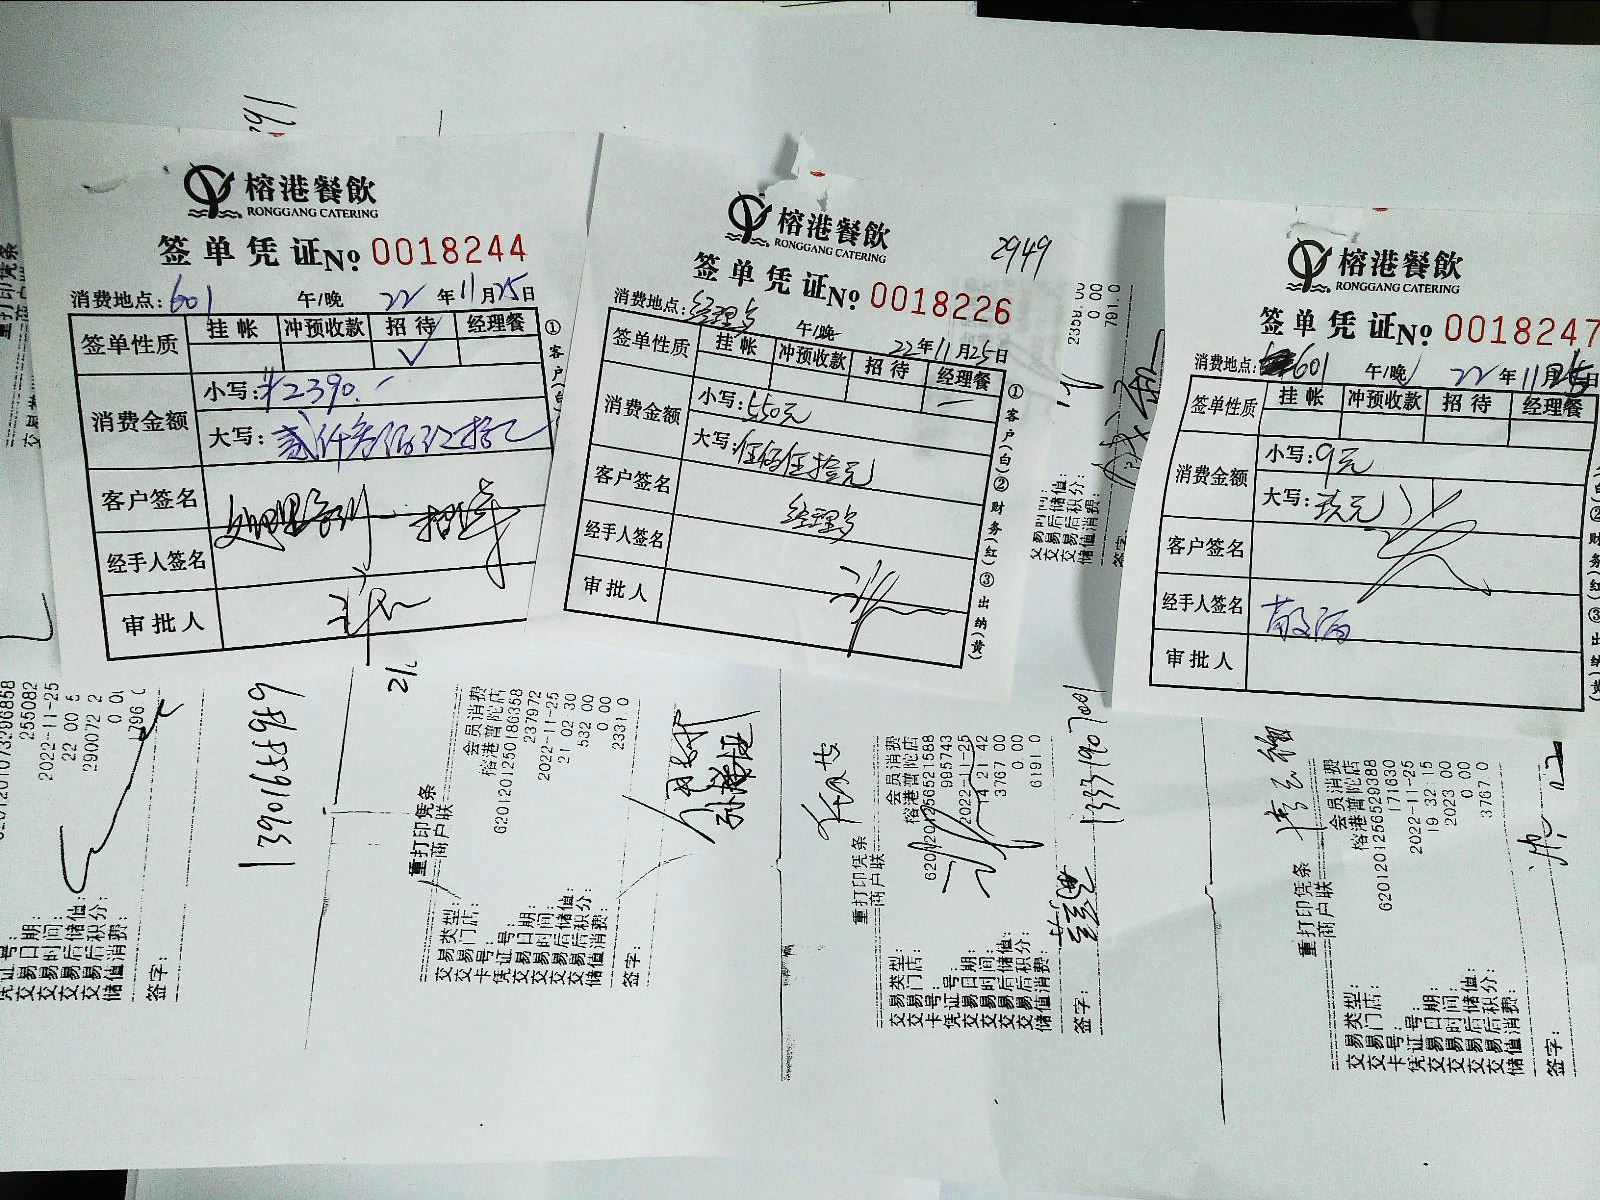 榕港餐飲
RONGGANG CATERING
签单凭证No. 0018244
消费地点: 601 午/晚 22年11月25日
签单性质 挂帐 冲预收款 招待 经理餐
✓
消费金额 小写: ¥2390.-
大写:
客户签名
经手人签名
审批人
①客户(白)
榕港餐飲
RONGGANG CATERING
2949
签单凭证No. 0018226
消费地点: 经理 午/晚 22年11月25日
签单性质 挂帐 冲预收款 招待 经理餐
消费金额 小写: 550元
大写: 伍佰伍拾元
客户签名
经手人签名
审批人
①客户(白)②财务(红)③出纳(黄)
榕港餐飲
RONGGANG CATERING
签单凭证No. 0018247
消费地点: 601 午/晚 22年11月25日
签单性质 挂帐 冲预收款 招待 经理餐
消费金额 小写: 9元
大写: 玖元
客户签名
经手人签名
审批人
2359.00
0 00
791.0
交易时间:
交易后储值:
交易后积分:
储值消费:
签字:
255082
2022-11-25
22 00 5
290072 2
凭证号:
交易日期:
交易时间:
交易后储值:
交易后积分:
储值消费:
签字:
13901655989
重打印凭条
商户联
交易类型: 会员消费
交易门店: 榕港普陀店
卡号: 6201201250186358
凭证号: 237972
交易日期: 2022-11-25
交易时间: 21 02 30
交易后储值: 532 00
交易后积分: 0 00
储值消费: 2331 0
签字:
重打印凭条
商户联
交易类型: 会员消费
交易门店: 榕港普陀店
卡号: 6201201256521588
凭证号: 995743
交易日期: 2022-11-25
交易时间: 14 21 42
交易后储值: 3767 00
交易后积分: 0 00
储值消费: 6191.0
签字:
13331907001
重打印凭条
商户联
交易类型: 会员消费
交易门店: 榕港普陀店
卡号: 6201201256529388
凭证号: 171630
交易日期: 2022-11-25
交易时间: 19 32 15
交易后储值: 2023 00
交易后积分: 0 00
储值消费: 3767.0
签字: